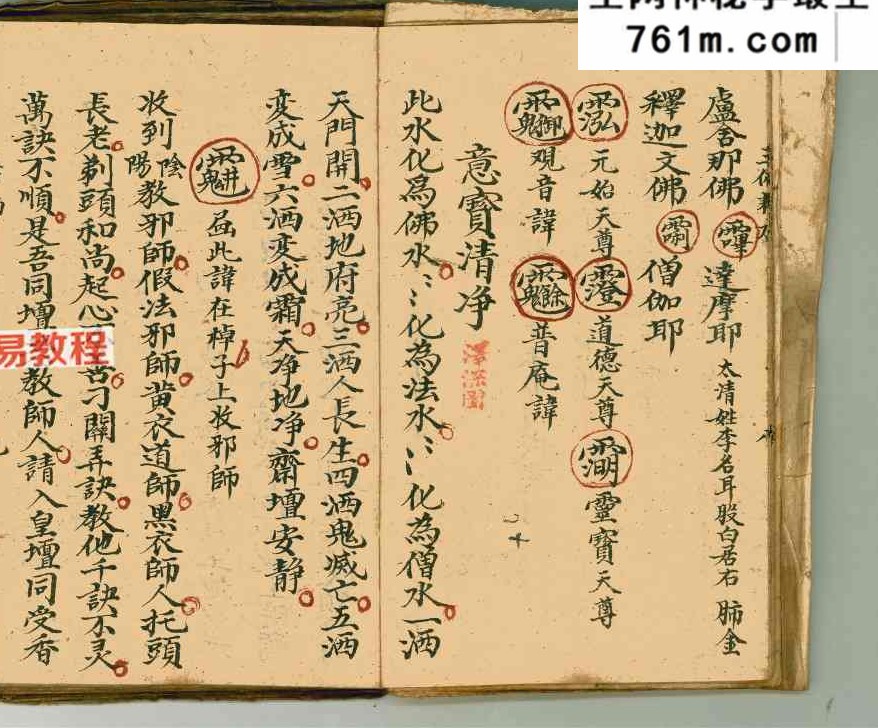 761m.com
盧舍那佛 達摩耶 太清姓李名耳股白居右 肺金
釋迦文佛 僧伽耶
元始天尊 道德天尊 靈寶天尊
观音諱 普庵諱
意寶清净
此水化為佛水〻化為法水〻化為僧水一洒
天門開二洒地府亮三洒人長生四洒鬼滅亡五洒
変成雪六洒变成霜天净地净齋壇安静
此諱在棹子上收邪師
收到陰陽教邪師假法邪師黄衣道師黑衣師人托頭
長老剃頭和尚起心 刁關弄訣教他千訣不灵
萬訣不順是吾同壇 教師人請入皇壇同受香
易教程